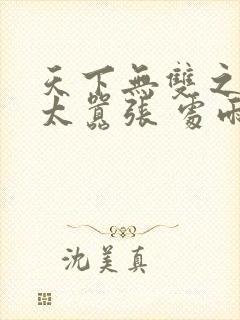 天下無雙之
太囂張
沈美真